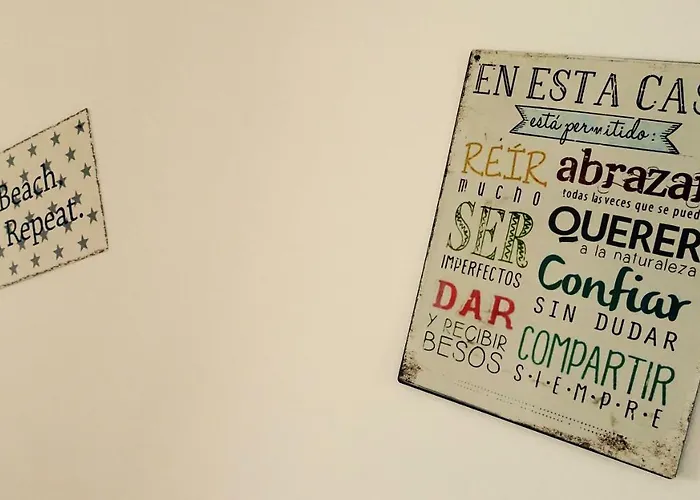 Beach.
Repeat.
EN ESTA CAS
está permitido:
REÍR
MUCHO
abrazar
todas las veces que se pued
SER
IMPERFECTOS
QUERER
a la naturaleza
DAR
Y RECIBIR
BESOS
Confiar
SIN DUDAR
COMPARTIR
S·I·E·M·P·R·E